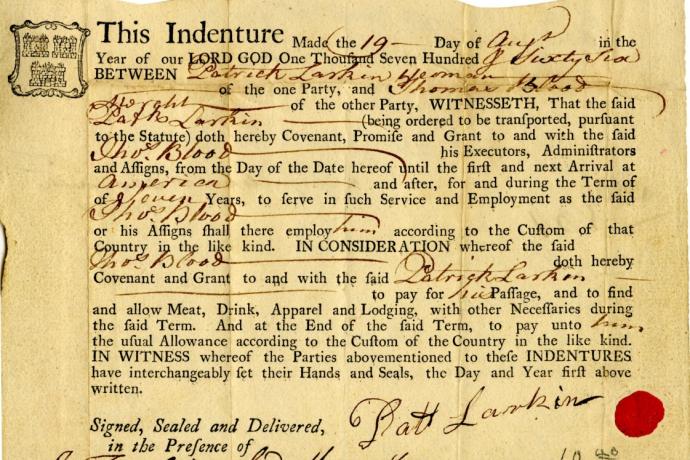 This Indenture Made the 19 Day of Augt in the
Year of our LORD GOD One Thousand Seven Hundred & Sixty Six
BETWEEN Patrick Larkin Yeoman
of the one Party, and Thomas Blood
of the other Party, WITNESSETH, That the said
Patk Larkin (being ordered to be transported, pursuant
to the Statute) doth hereby Covenant, Promise and Grant to and with the said
Thos. Blood his Executors, Administrators
and Assigns, from the Day of the Date hereof until the first and next Arrival at
America and after, for and during the Term of
of Seven Years, to serve in such Service and Employment as the said
Thos. Blood
or his Assigns shall there employ him according to the Custom of that
Country in the like kind. IN CONSIDERATION whereof the said
Thos. Blood doth hereby
Covenant and Grant to and with the said Patrick Larkin
to pay for his Passage, and to find
and allow Meat, Drink, Apparel and Lodging, with other Necessaries during
the said Term. And at the End of the said Term, to pay unto him
the usual Allowance according to the Custom of the Country in the like kind.
IN WITNESS whereof the Parties abovementioned to these INDENTURES
have interchangeably set their Hands and Seals, the Day and Year first above
written.
Patt Larkin
Signed, Sealed and Delivered,
in the Presence of